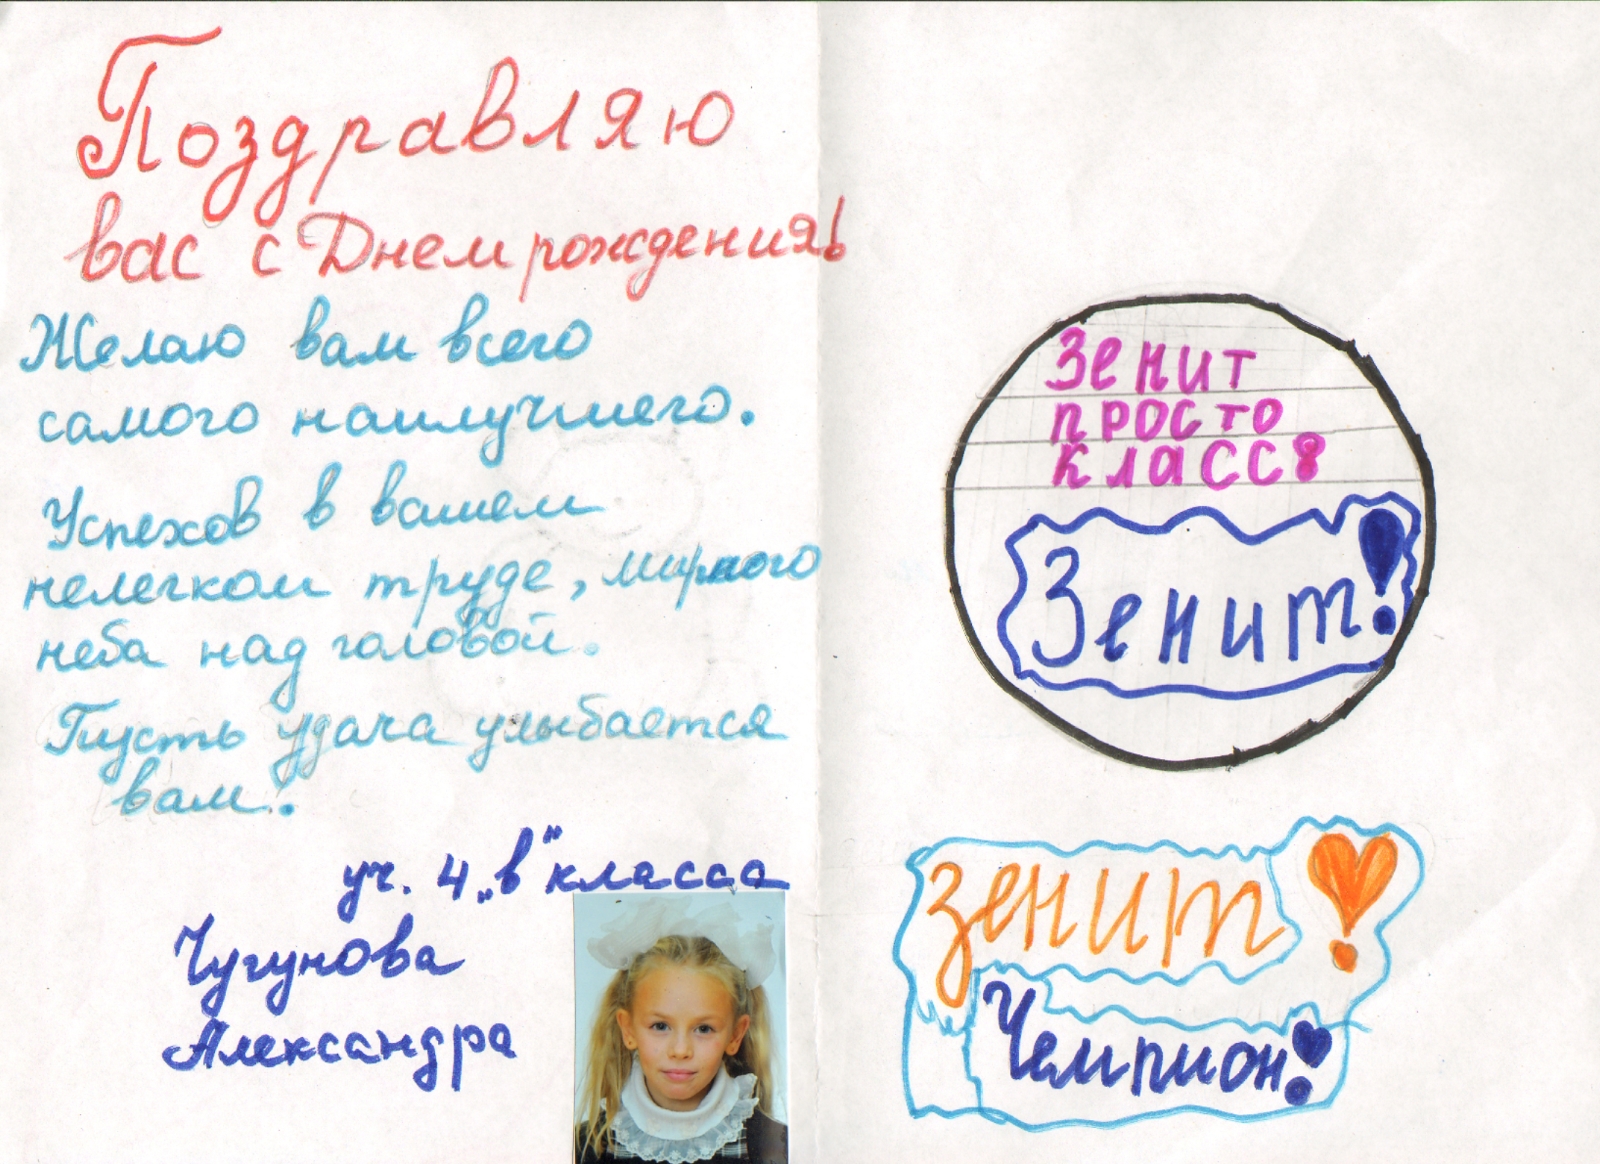 Поздравляю
вас с Днем рождения!
Желаю вам всего
самого наилучшего.
Успехов в вашем
нелегком труде, мирного
неба над головой.
Пусть удача улыбается
вам!
уч. 4 „в" класса
Чугунова
Александра
Зенит
просто
класс!
Зенит!
зенит!
Чемпион!